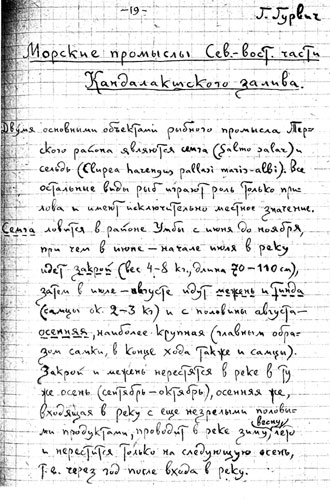 -19-
Г. Гурвич
Морские промыслы Сев.-вост. части
Кандалакшского залива.
Двумя основными объектами рыбного промысла Тер-
ского района являются семга (Salmo salar) и
сельдь (Clupea harengus pallasi maris-albi). Все
остальные виды рыб играют роль только при-
лова и имеют исключительно местное значение.
Семга ловится в районе Умбы с июня до ноября,
при чем в июне – начале июля в реку
идет закрой (вес 4-8 кг., длина 70-110 см),
затем в июле – августе идут межень и тинда
(самцы ок. 2-3 кг) и с половины августа –
осенняя, наиболее крупная (главным обра-
зом самки, в конце хода также и самцы).
Закрой и межень нерестятся в реке в ту
же осень (сентябрь – октябрь), осенняя же,
входящая в реку с еще незрелыми половы-
ми продуктами, проводит в реке зиму, весну, лето
и нерестится только на следующую осень,
т.е. через год после входа в реку.